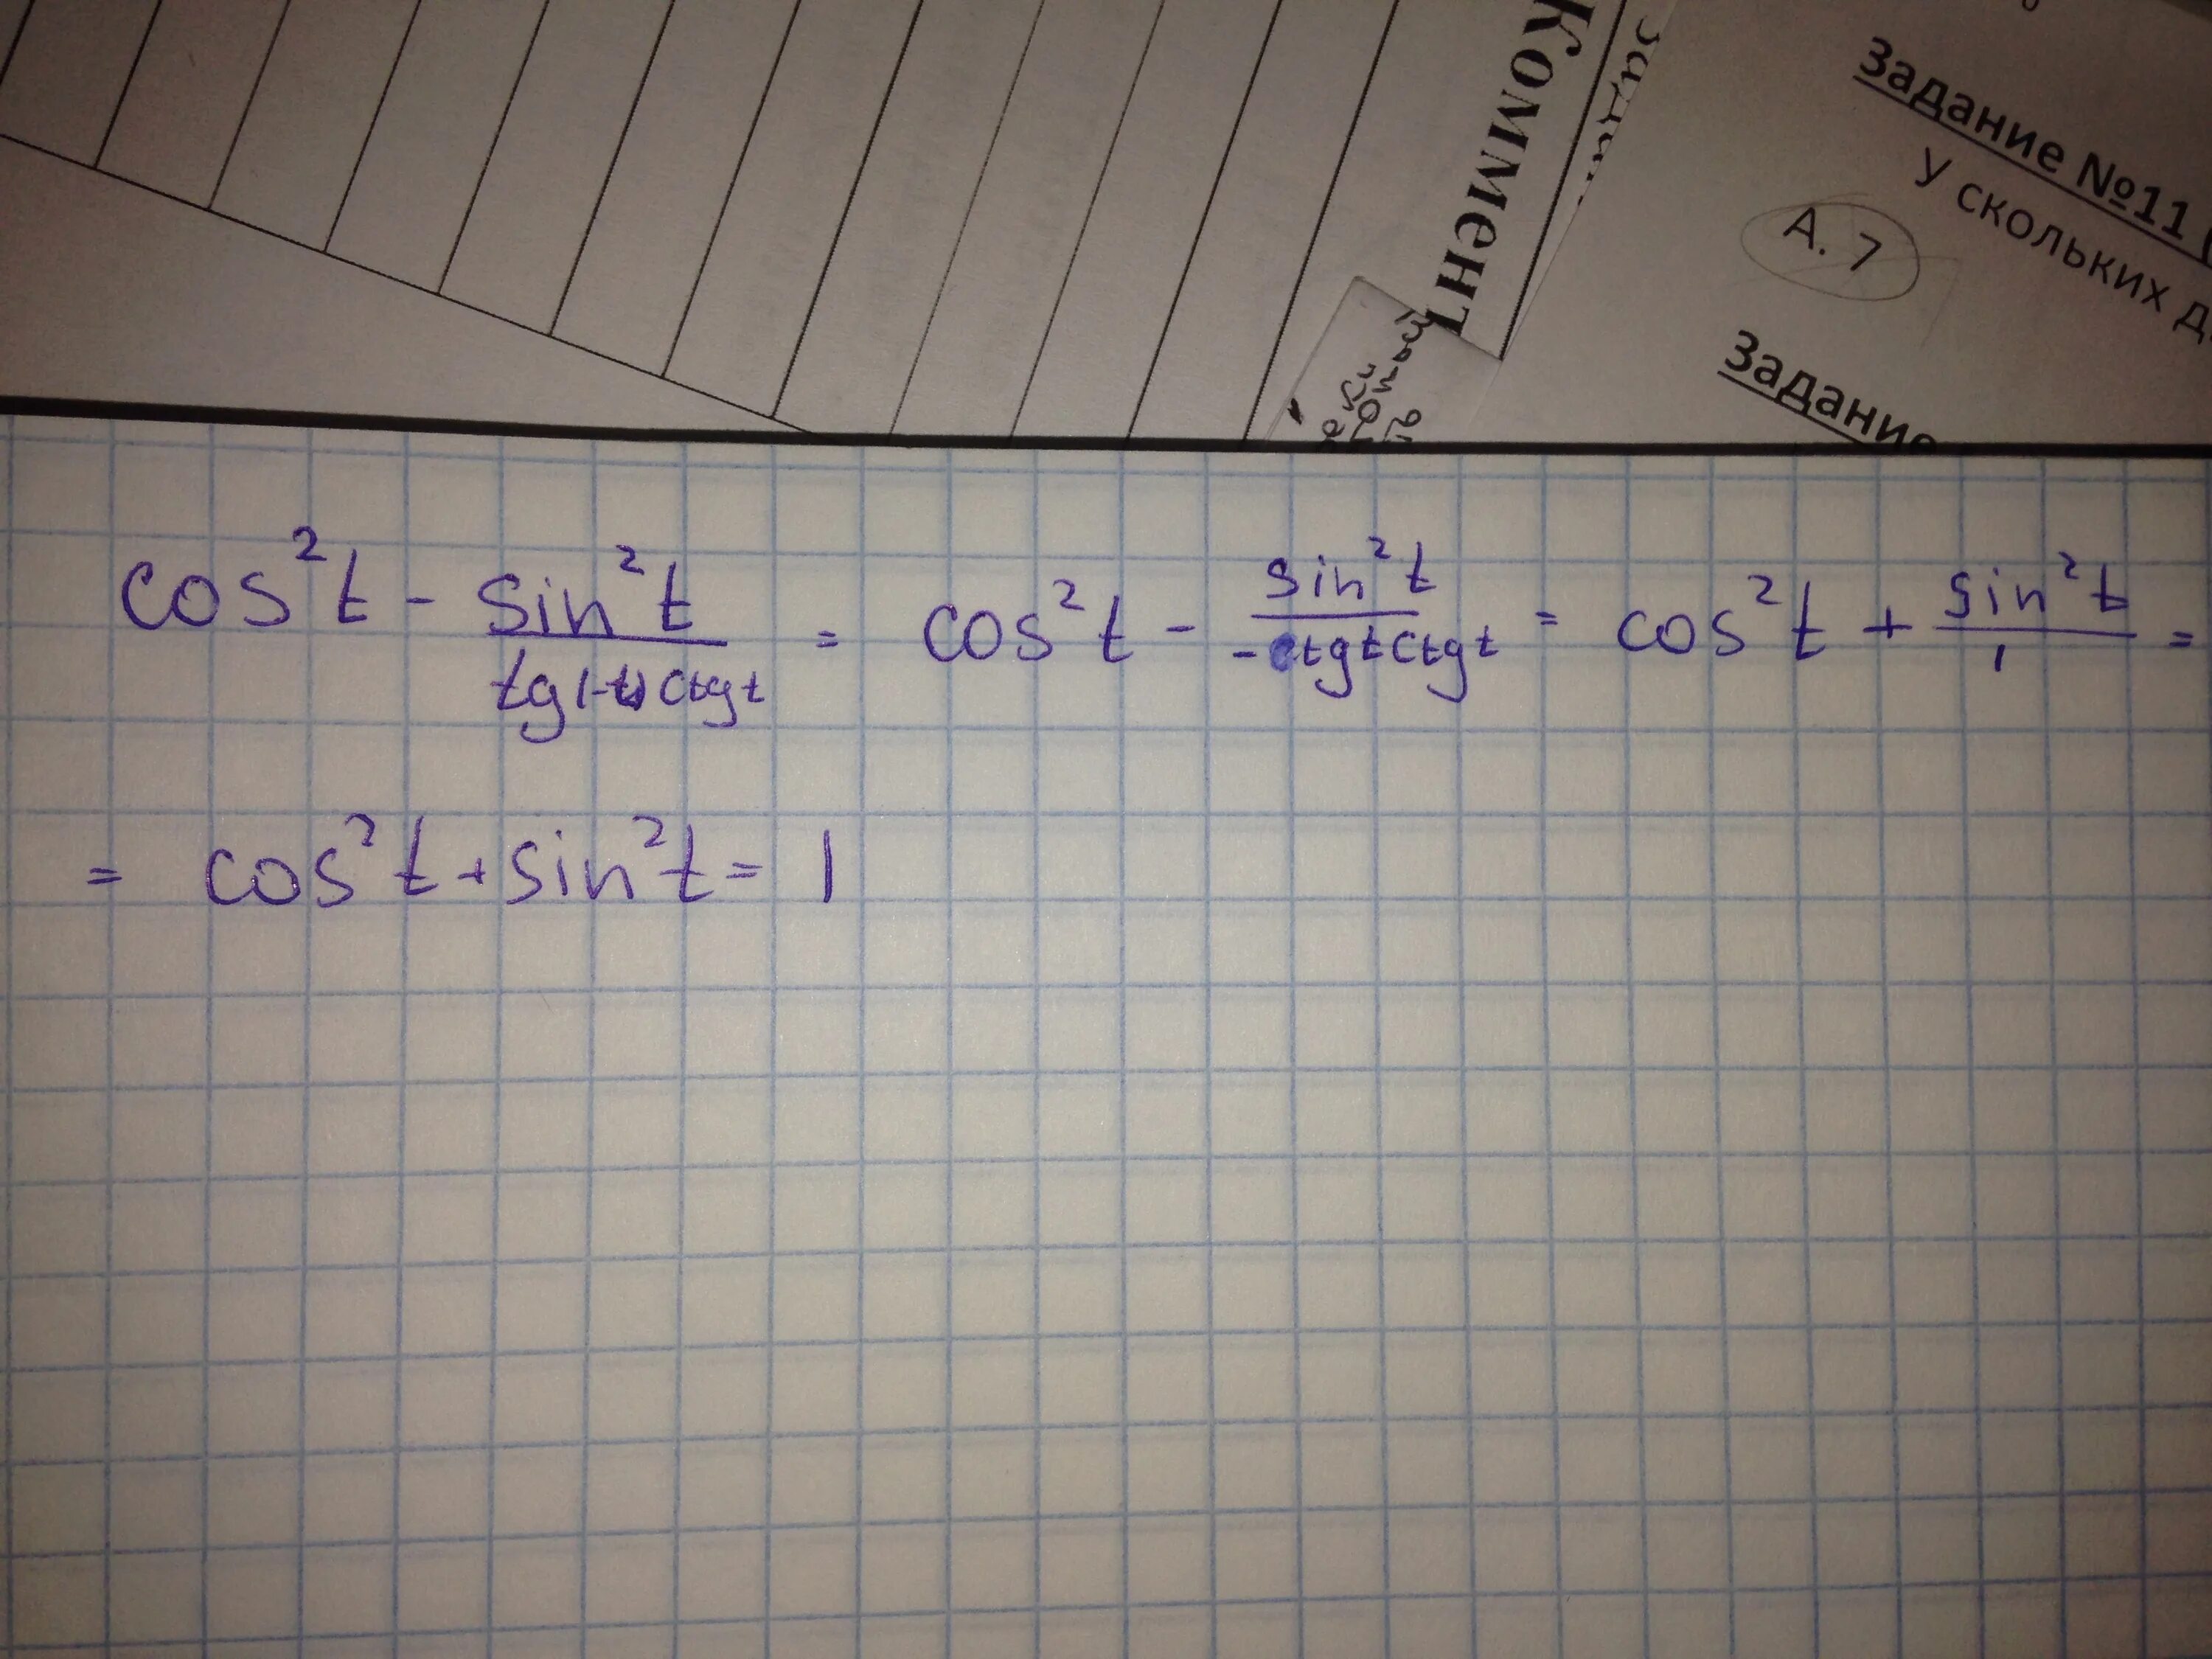 Коммент
Задание №11
У скольких
А. 7
Задание
cos²t - sin²t/tg(-t)ctgt = cos²t - sin²t/-tgtctgt = cos²t + sin²t/1 =
= cos²t + sin²t = 1